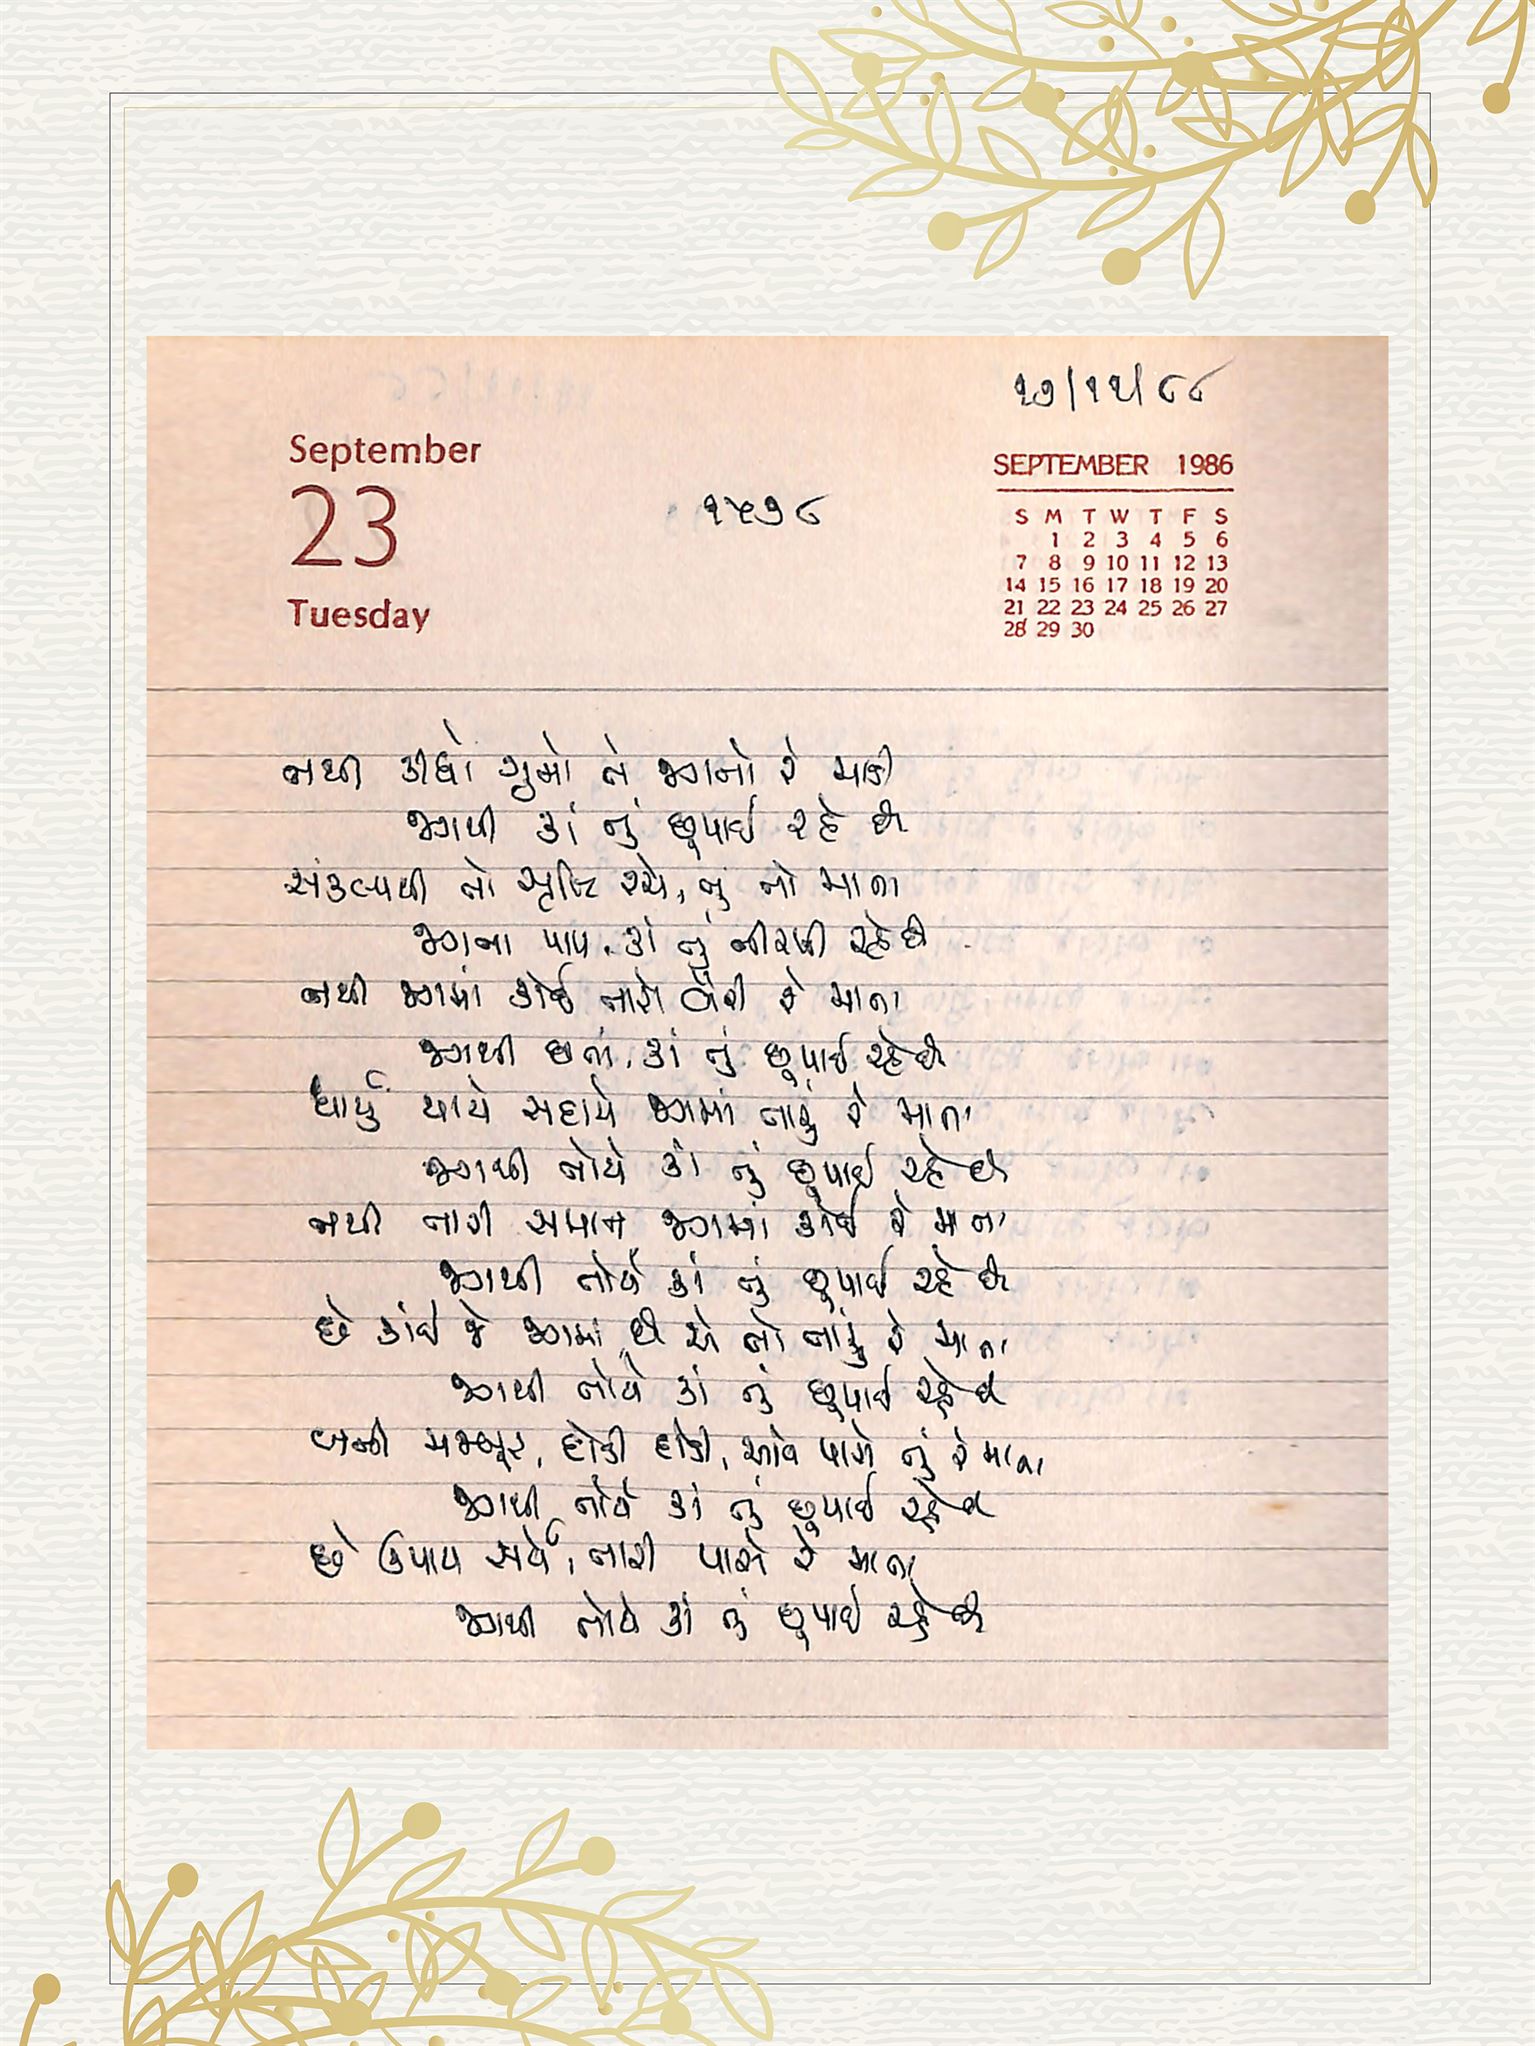 ૧૭/૧૧/૮૮
September
23
Tuesday
૧૫૭૮
SEPTEMBER 1986
S M T W T F S
1 2 3 4 5 6
7 8 9 10 11 12 13
14 15 16 17 18 19 20
21 22 23 24 25 26 27
28 29 30
નથી કીધો ગુનો તેં જગનો રે માડી
જગથી કાં તું છુપાઈ રહે છે
સંકલ્પથી તો સૃષ્ટિ રચે, તું તો માતા
જગના પાપ કાં તું નીરખી રહે છે
નથી જગમાં કોઈ તારો વેરી રે માતા
જગથી છતાં કાં તું છુપાઈ રહે છે
ધાર્યું થાયે સદાયે જગમાં તારું રે માતા
જગથી તોયે કાં તું છુપાઈ રહે છે
નથી તારી સમાન જગમાં કોઈ રે માતા
જગથી તોયે કાં તું છુપાઈ રહે છે
છે કાંઈ જે જગમાં, છે એ તો તારું રે માતા
જગથી તોયે કાં તું છુપાઈ રહે છે
બની મજબૂર, દોડી દોડી, આવે પાસે તું રે માતા
જગથી તોયે કાં તું છુપાઈ રહે છે
છે ઉપાય સર્વે, તારી પાસે રે માતા
જગથી તોયે કાં તું છુપાઈ રહે છે